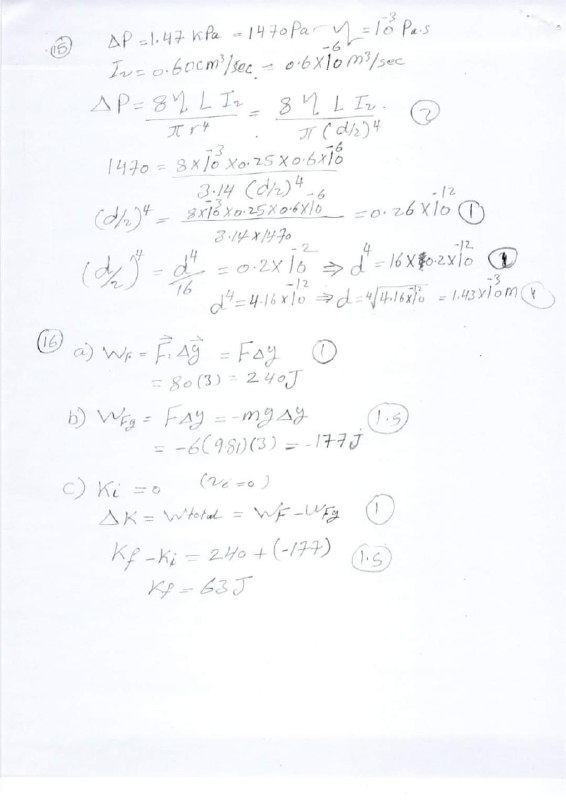 (15) ΔP = 1.47 kPa = 1470 Pa η = 10⁻³ Pa.s
Iᵥ = 0.60 cm³/sec = 0.6×10⁻⁶ m³/sec
ΔP = 8ηLIᵥ / πr⁴ = 8ηLIᵥ / π(d/2)⁴ (2)
1470 = 8×10⁻³×0.25×0.6×10⁻⁶ / 3.14 (d/2)⁴
(d/2)⁴ = 8×10⁻³×0.25×0.6×10⁻⁶ / 3.14×1470 = 0.26×10⁻¹² (1)
(d/2)⁴ = d⁴/16 = 0.2×10⁻² ⇒ d⁴ = 16×0.2×10⁻¹²
d⁴ = 4.16×10⁻¹² ⇒ d = ⁴√4.16×10⁻¹² = 1.43×10⁻³ m
(16) a) W_F = F⃗. Δy⃗ = FΔy (1)
= 80(3) = 240J
b) W_Fg = FΔy = -mgΔy (1.5)
= -6(9.81)(3) = -177J
c) Ki = 0 (vi = 0)
ΔK = Wtotal = W_F - W_Fg (1)
Kf - Ki = 240 + (-177) (1.5)
Kf = 63J